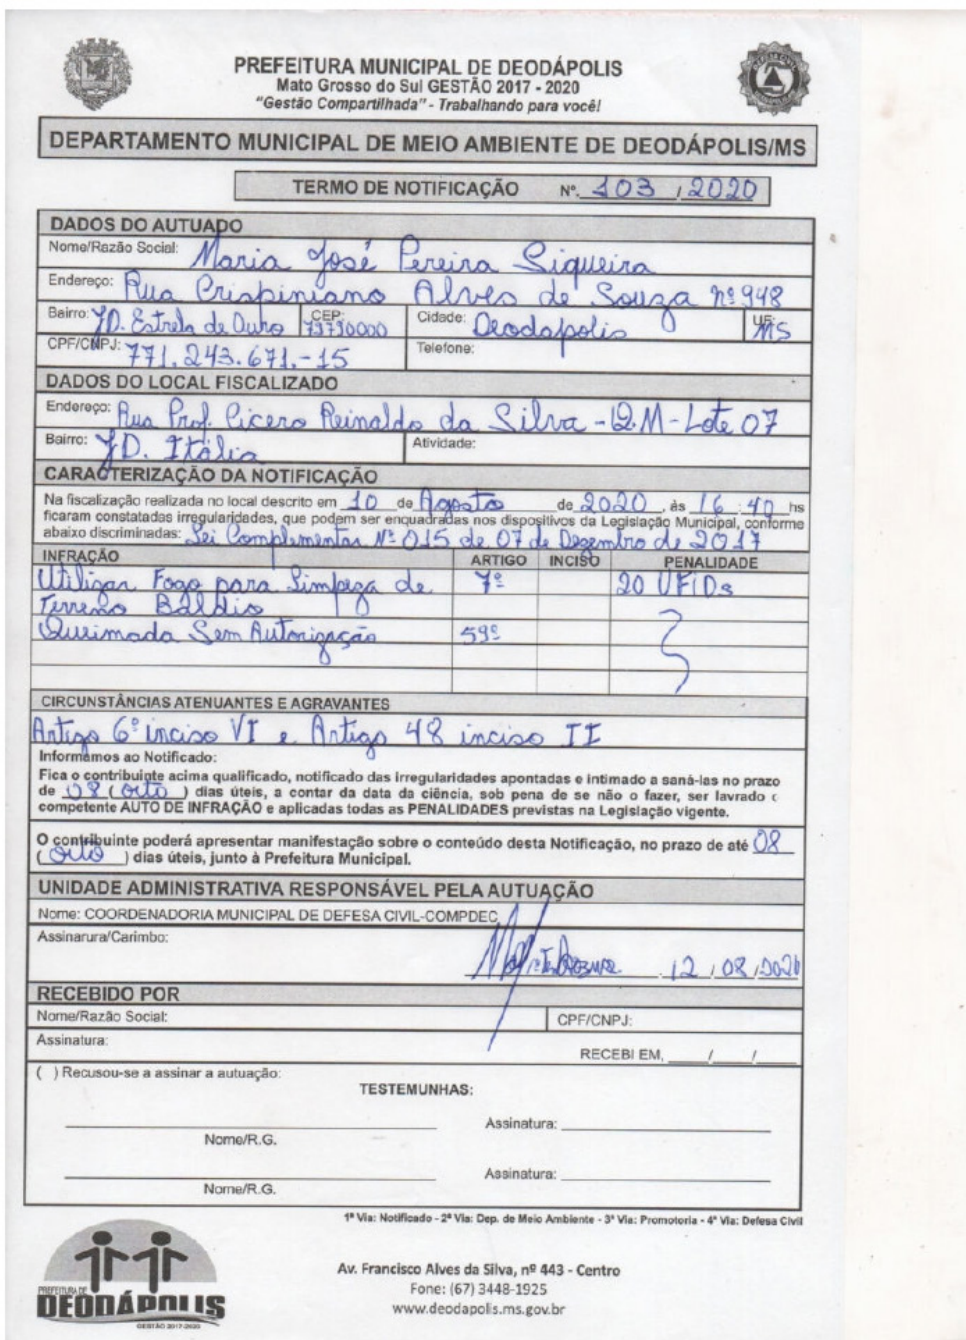 PREFEITURA MUNICIPAL DE DEODÁPOLIS
Mato Grosso do Sul GESTÃO 2017 - 2020
"Gestão Compartilhada" - Trabalhando para você!
DEPARTAMENTO MUNICIPAL DE MEIO AMBIENTE DE DEODÁPOLIS/MS
TERMO DE NOTIFICAÇÃO Nº. 103 / 2020
DADOS DO AUTUADO
Nome/Razão Social: Maria José Pereira Siqueira
Endereço: Rua Crispiniano Alves de Souza nº 948
Bairro: JD. Estrela de Ouro CEP: 79790000 Cidade: Deodapolis UF: MS
CPF/CNPJ: 771.243.671-15 Telefone:
DADOS DO LOCAL FISCALIZADO
Endereço: Rua Prof. Cicero Reinaldo da Silva - Q.M - Lote 07
Bairro: JD. Itália Atividade:
CARACTERIZAÇÃO DA NOTIFICAÇÃO
Na fiscalização realizada no local descrito em 10 de Agosto de 2020, às 16:40 hs
ficaram constatadas irregularidades, que podem ser enquadradas nos dispositivos da Legislação Municipal, conforme
abaixo discriminadas: Lei Complementar Nº 015 de 07 de Dezembro de 2017
INFRAÇÃO ARTIGO INCISO PENALIDADE
Utilizar Fogo para Limpeza de 7º 20 UFIDs
Terreno Baldio
Queimada Sem Autorização 59º
CIRCUNSTÂNCIAS ATENUANTES E AGRAVANTES
Artigo 6º inciso VI e Artigo 48 inciso II
Informamos ao Notificado:
Fica o contribuinte acima qualificado, notificado das irregularidades apontadas e intimado a saná-las no prazo
de 08 ( oito ) dias úteis, a contar da data da ciência, sob pena de se não o fazer, ser lavrado o
competente AUTO DE INFRAÇÃO e aplicadas todas as PENALIDADES previstas na Legislação vigente.
O contribuinte poderá apresentar manifestação sobre o conteúdo desta Notificação, no prazo de até 08
( oito ) dias úteis, junto à Prefeitura Municipal.
UNIDADE ADMINISTRATIVA RESPONSÁVEL PELA AUTUAÇÃO
Nome: COORDENADORIA MUNICIPAL DE DEFESA CIVIL-COMPDEC
Assinarura/Carimbo:
12 / 08 / 2020
RECEBIDO POR
Nome/Razão Social: CPF/CNPJ:
Assinatura: RECEBI EM, ____/____/____
( ) Recusou-se a assinar a autuação:
TESTEMUNHAS:
Assinatura:
Nome/R.G.
Assinatura:
Nome/R.G.
1ª Via: Notificado - 2ª Via: Dep. de Meio Ambiente - 3ª Via: Promotoria - 4ª Via: Defesa Civil
PREFEITURA DE
DEODÁPOLIS
GESTÃO 2017-2020
Av. Francisco Alves da Silva, nº 443 - Centro
Fone: (67) 3448-1925
www.deodapolis.ms.gov.br